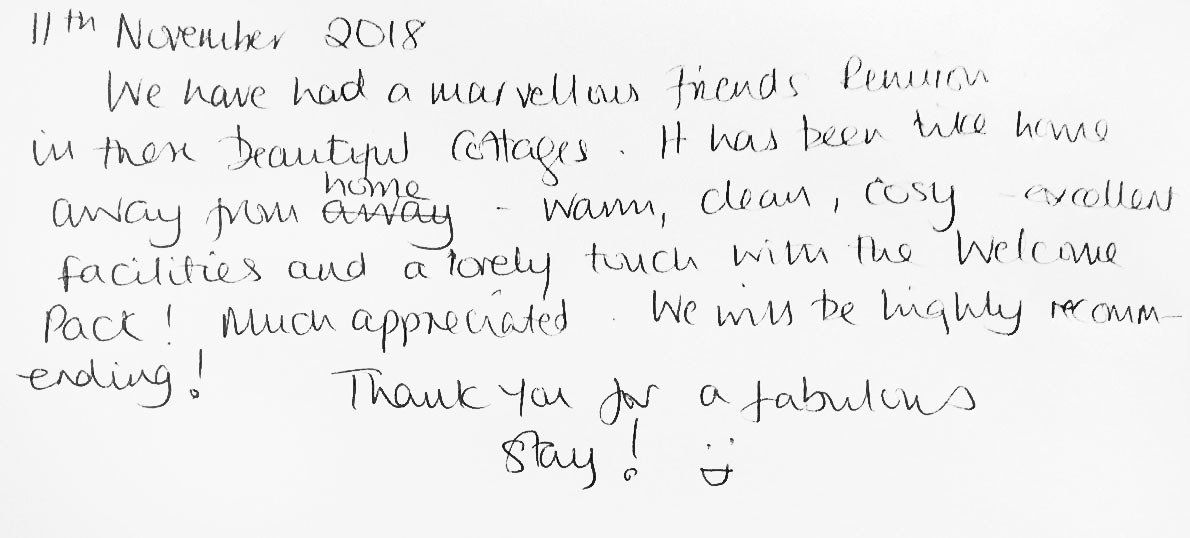 11th November 2018
We have had a marvellous friends Reunion
in these beautiful Cottages. It has been like home
away from away home - warm, clean, cosy - excellent
facilities and a lovely touch with the Welcome
Pack! Much appreciated. We will be highly recomm-
ending!
Thank you for a fabulous
stay! :D